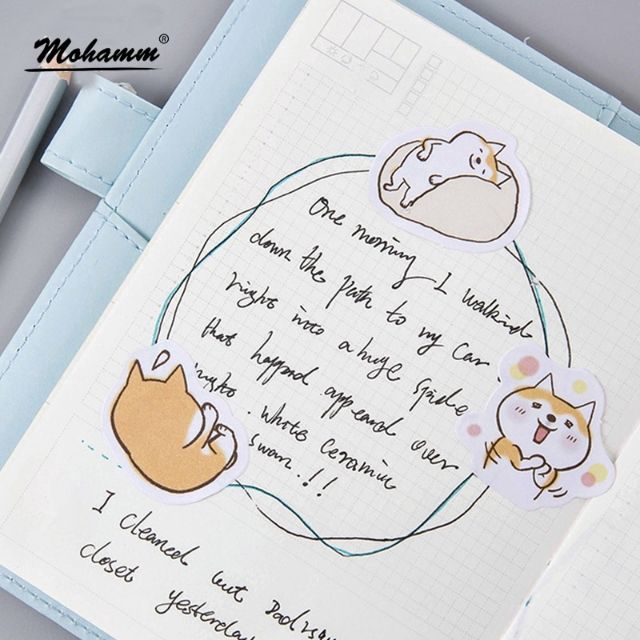 Mohamm®
One morning I walkind
down the path to my car
right into a huge spide
that happend appeard over
night. white ceramic
swan.!!
I cleaned out Dad's
closet yesterday